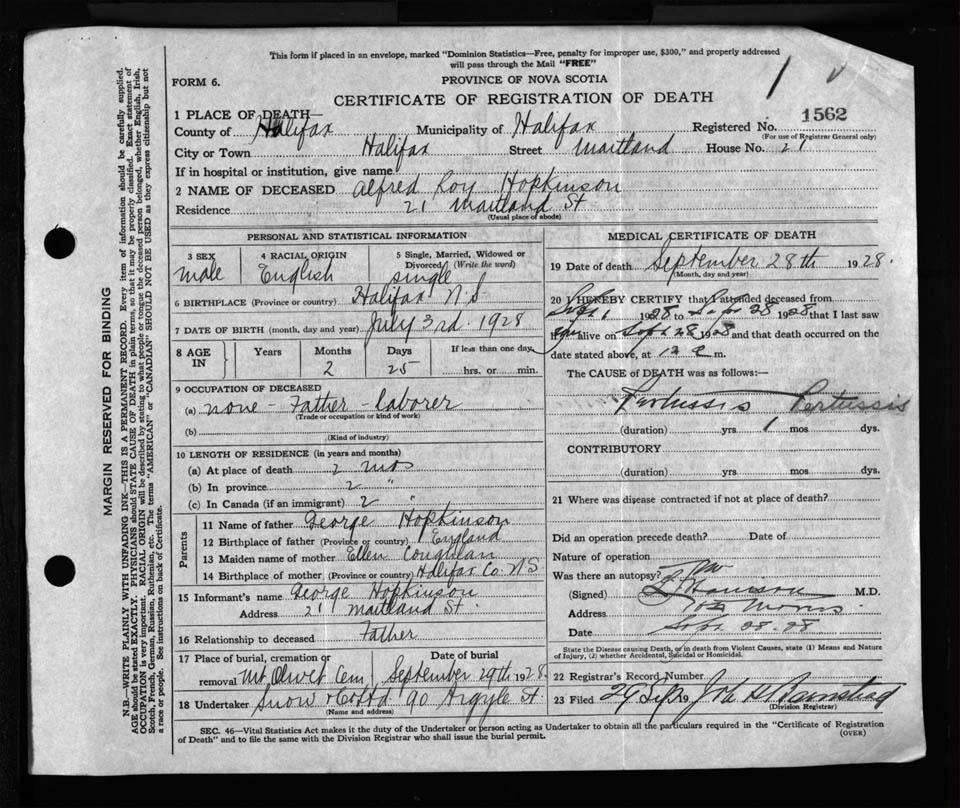 This form if placed in an envelope, marked "Dominion Statistics—Free, penalty for improper use, $300," and properly addressed
will pass through the Mail "FREE"
FORM 6.
PROVINCE OF NOVA SCOTIA
1
CERTIFICATE OF REGISTRATION OF DEATH
1 PLACE OF DEATH—
County of Halifax Municipality of Halifax Registered No. 1562
(For use of Registrar General only)
City or Town Halifax Street Maitland House No. 21
If in hospital or institution, give name
2 NAME OF DECEASED Alfred Roy Hopkinson
Residence 21 Maitland St
(Usual place of abode)
PERSONAL AND STATISTICAL INFORMATION
3 SEX male
4 RACIAL ORIGIN English
5 Single, Married, Widowed or Divorced (Write the word) single
6 BIRTHPLACE (Province or country) Halifax N.S
7 DATE OF BIRTH (month, day and year) July 3rd. 1928
8 AGE IN Years Months 2 Days 25 If less than one day, hrs. or min.
9 OCCUPATION OF DECEASED
(a) none - Father - laborer
(Trade or occupation or kind of work)
(b)
(Kind of industry)
10 LENGTH OF RESIDENCE (in years and months)
(a) At place of death 2 mos
(b) In province 2 "
(c) In Canada (if an immigrant) 2 "
Parents
11 Name of father George Hopkinson
12 Birthplace of father (Province or country) England
13 Maiden name of mother Ellen Coughlan
14 Birthplace of mother (Province or country) Halifax Co. N.S
15 Informant's name George Hopkinson
Address 21 Maitland St.
16 Relationship to deceased Father
17 Place of burial, cremation or removal Mt Olivet Cem Date of burial September 29th 1928
18 Undertaker Snow & Co Ltd 90 Argyle St
(Name and address)
MEDICAL CERTIFICATE OF DEATH
19 Date of death September 28th 1928.
(Month, day and year)
20 I HEREBY CERTIFY that I attended deceased from
Sept 1 1928 to Sept 28 1928 that I last saw
him alive on Sept 28 1928 and that death occurred on the
date stated above, at 12 m.
The CAUSE of DEATH was as follows:—
Pertussis Pertussis
(duration) yrs 1 mos dys.
CONTRIBUTORY
(duration) yrs. mos. dys.
21 Where was disease contracted if not at place of death?
Did an operation precede death? Date of
Nature of operation
Was there an autopsy? no
(Signed) M.D.
Address Morris
Date Sept. 28. 28
State the Disease causing Death, or in death from Violent Causes, state (1) Means and Nature of Injury, (2) whether Accidental, Suicidal or Homicidal.
22 Registrar's Record Number
23 Filed 29 Sept 19
(Division Registrar)
SEC. 46—Vital Statistics Act makes it the duty of the Undertaker or person acting as Undertaker to obtain all the particulars required in the "Certificate of Registration
of Death" and to file the same with the Division Registrar who shall issue the burial permit.
(OVER)
MARGIN RESERVED FOR BINDING
N.B.—WRITE PLAINLY WITH UNFADING INK—THIS IS A PERMANENT RECORD. Every item of information should be carefully supplied.
AGE should be stated EXACTLY. PHYSICIANS should STATE CAUSE OF DEATH in plain terms, so that it may be properly classified. Exact statement of
OCCUPATION is very important. RACIAL ORIGIN will be described by stating to what people or tongue the deceased person belonged, whether English, Irish,
Scotch, French, German, Russian, Ruthenian, etc. The terms "AMERICAN" or "CANADIAN" SHOULD NOT BE USED as they express citizenship but not
a race or people. See instructions on back of Certificate.